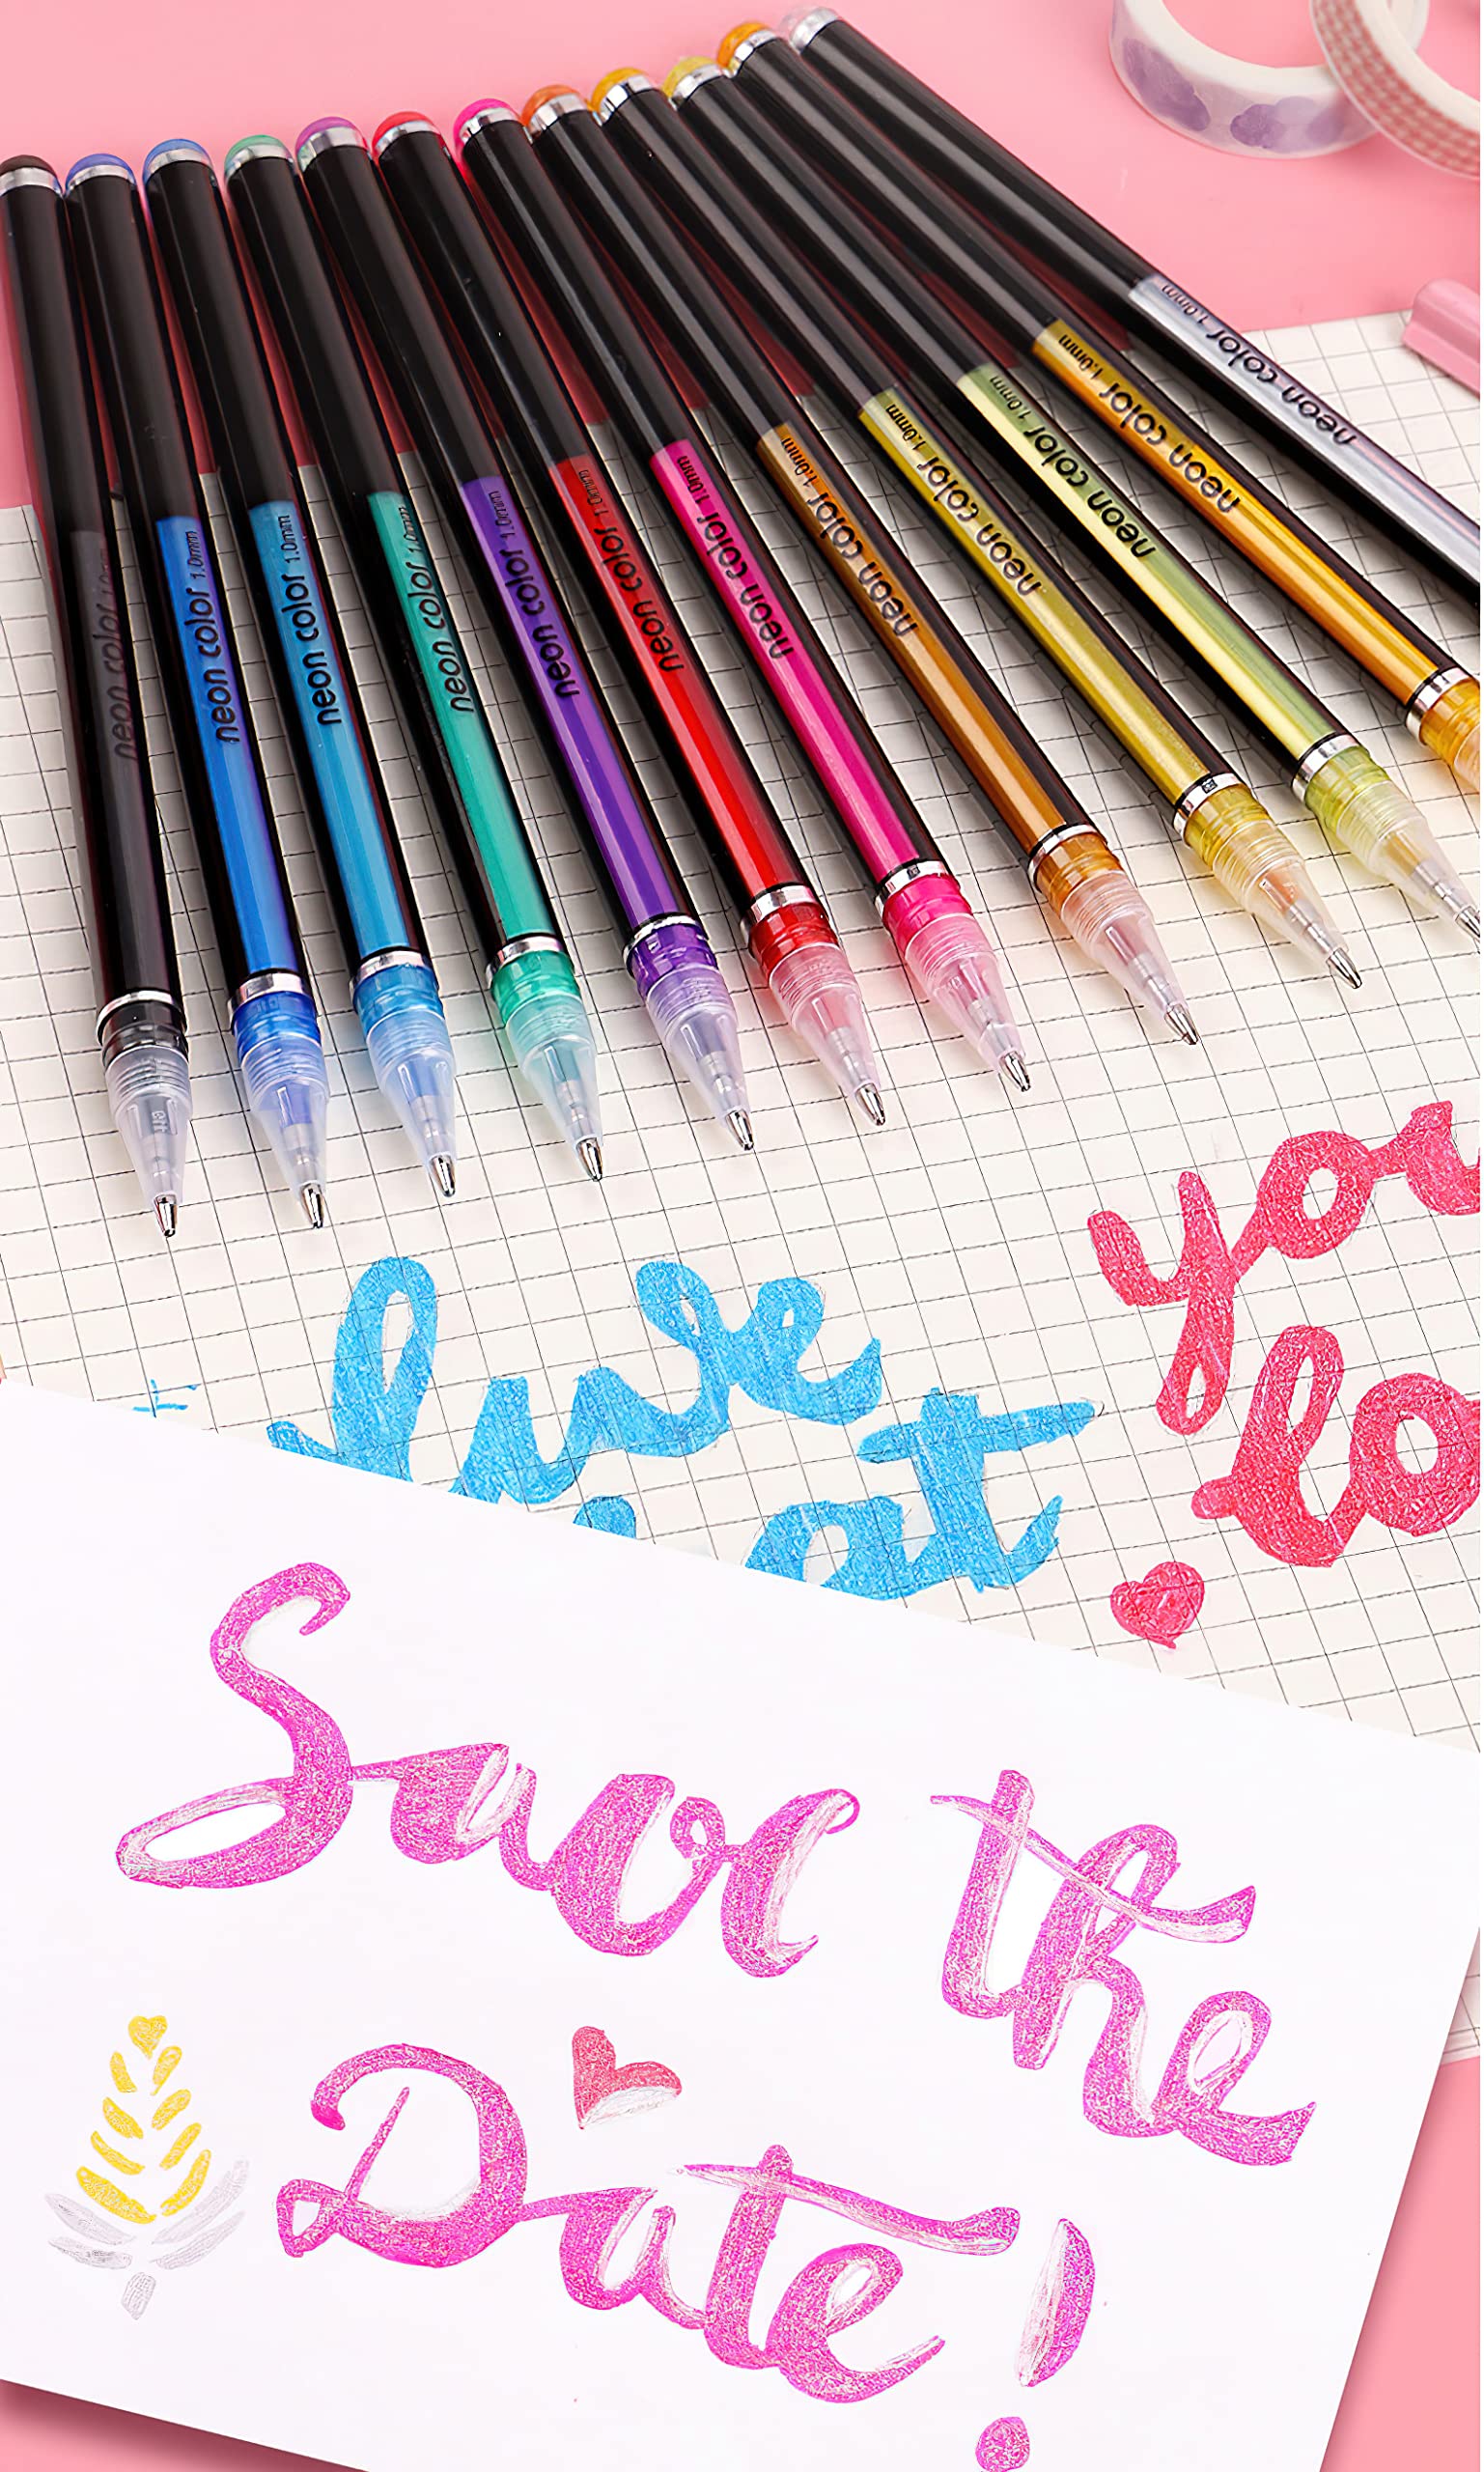 neon color 1.0mm
neon color 1.0mm
neon color 1.0mm
neon color 1.0mm
neon color 1.0mm
neon color 1.0mm
neon color 1.0mm
neon color 1.0mm
neon color 1.0mm
neon color 1.0mm
neon color 1.0mm
neon color 1.0mm
you
live
lo
at
Save the
Date!